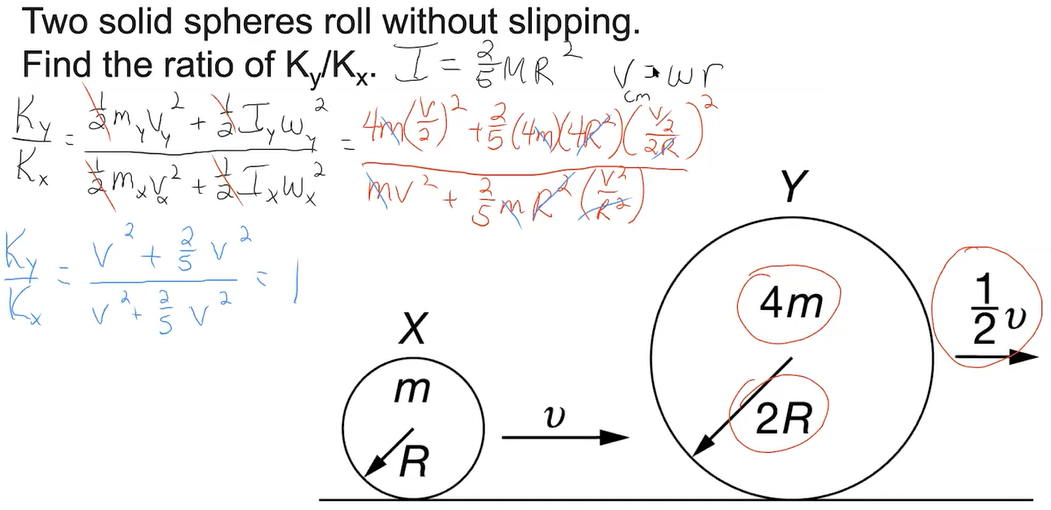 Two solid spheres roll without slipping.
Find the ratio of Ky/Kx. I = 2/5 MR² Vcm = ωr
Ky/Kx = (1/2 my vy² + 1/2 Iy ωy²)/(1/2 mx vx² + 1/2 Ix ωx²) = (4m(v/2)² + 2/5 (4m)(4R²)((v/2)/2R)²)/(mv² + 2/5 mR² (v²/R²))
Ky/Kx = (v² + 2/5 v²)/(v² + 2/5 v²) = 1
X
m
R
υ
Y
4m
2R
1/2 υ